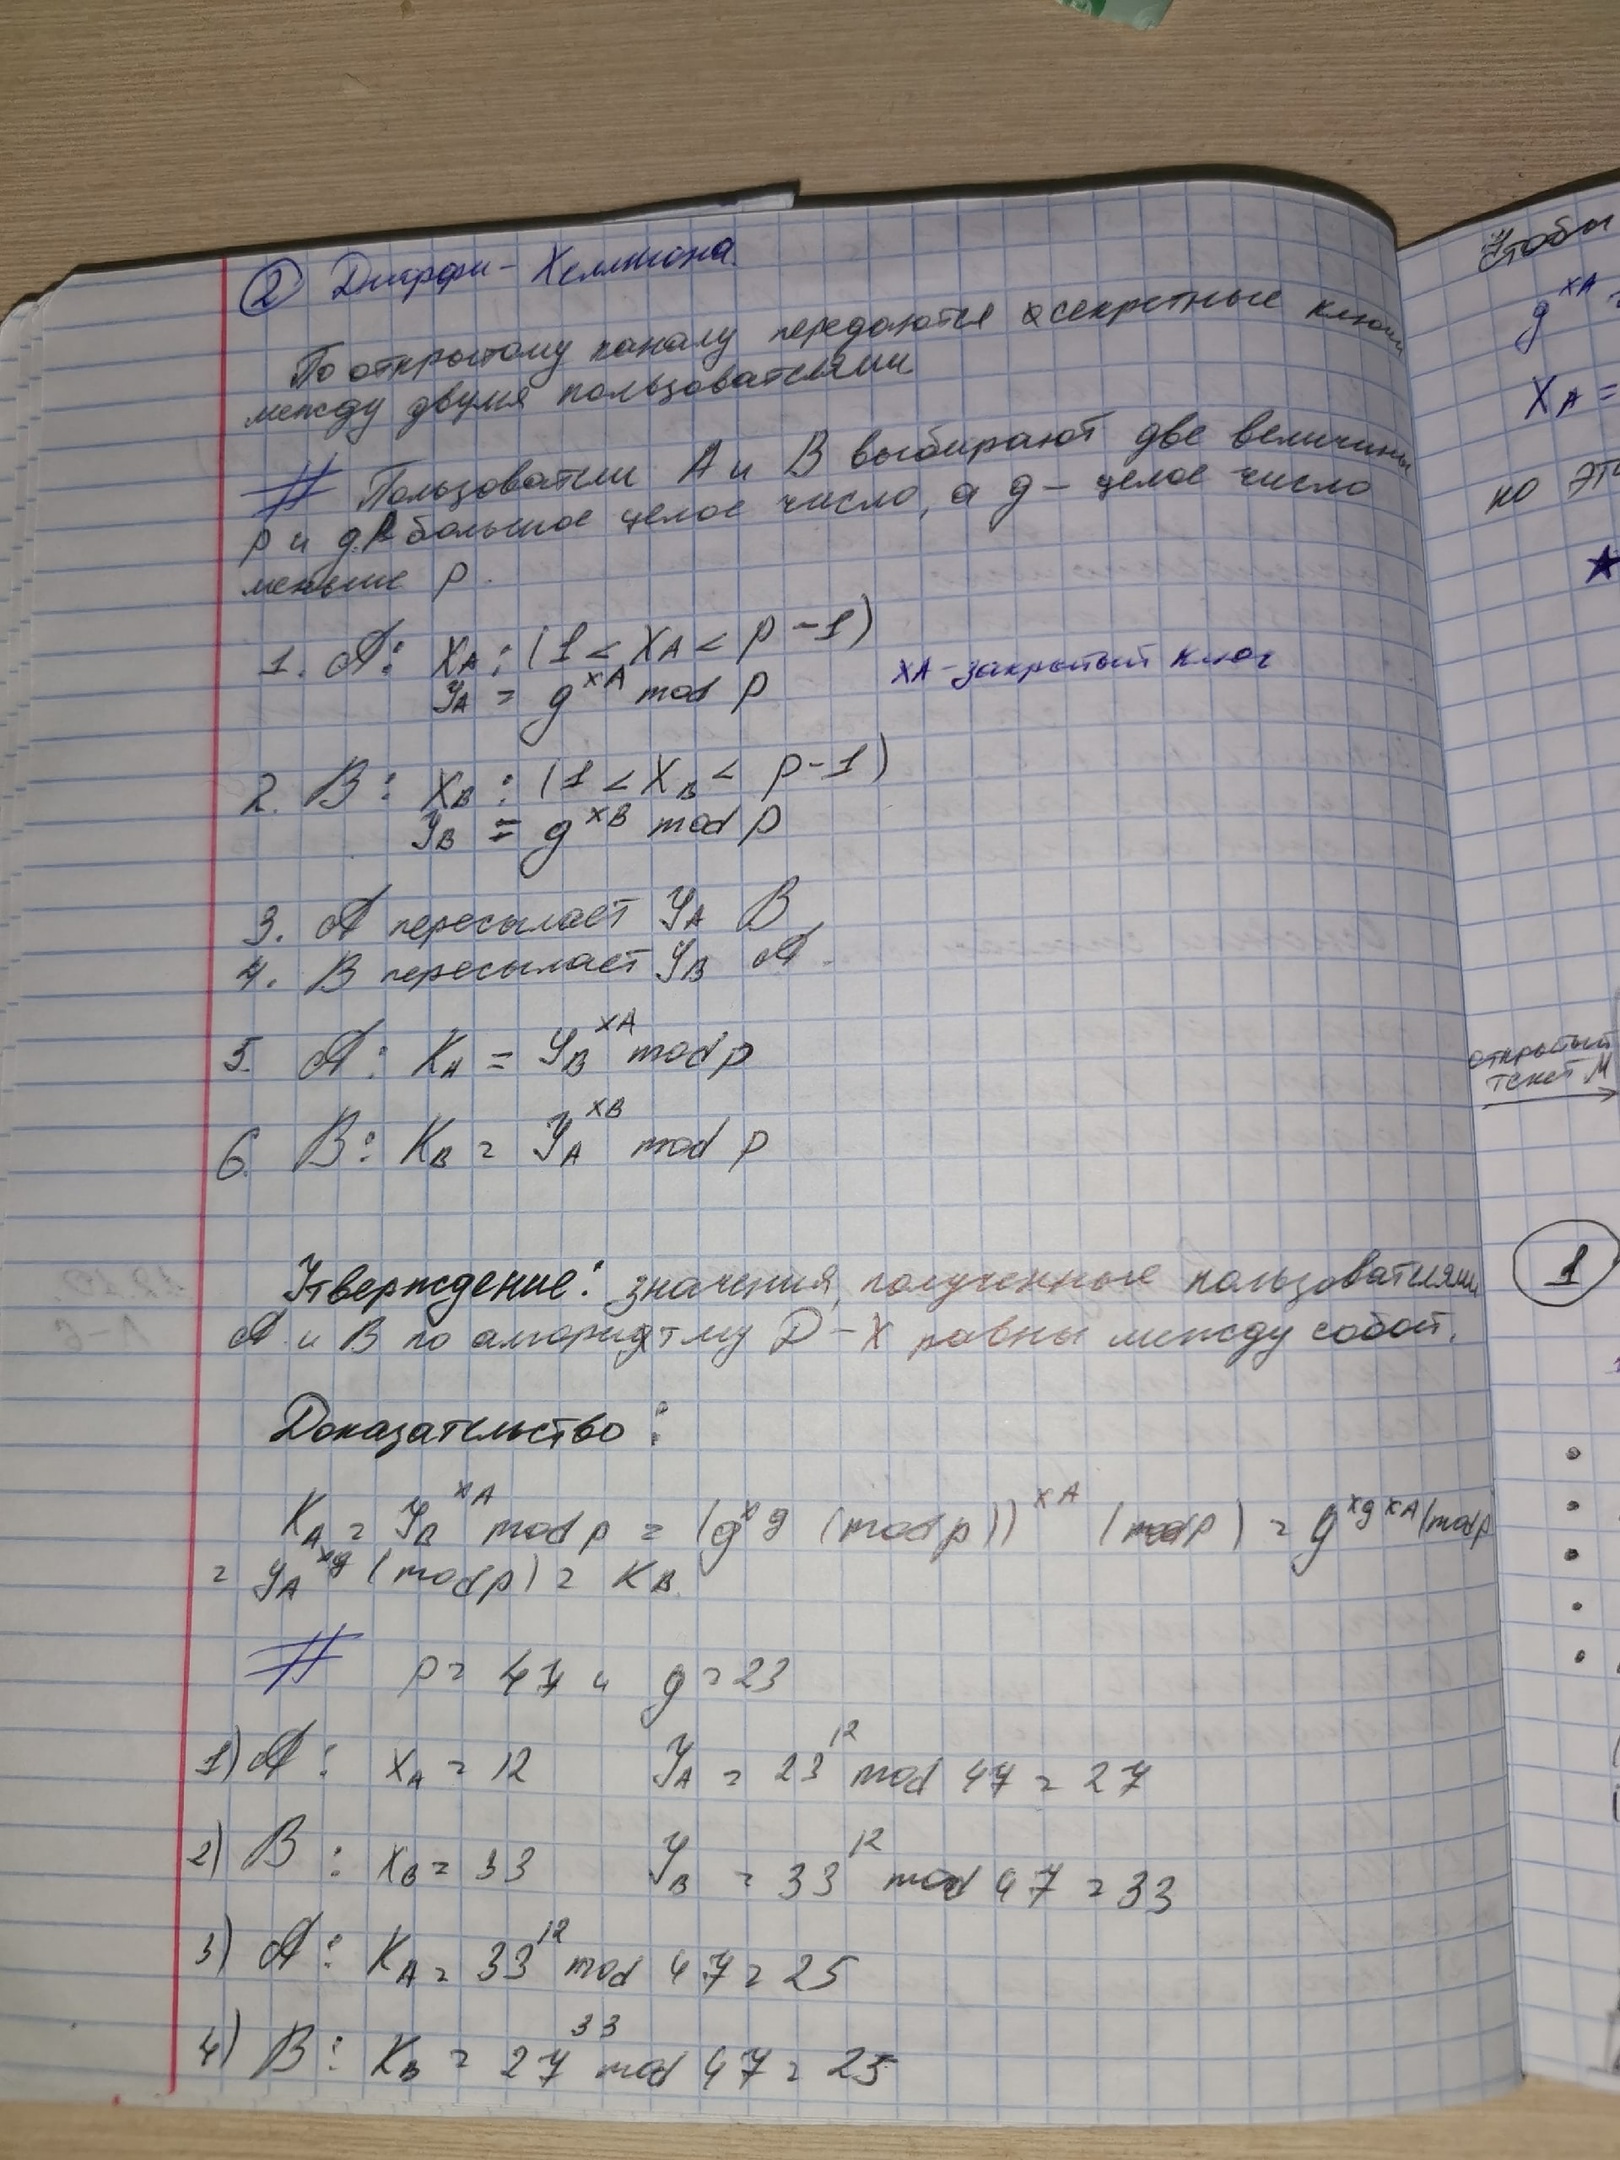 ② Диффи-Хеллмана.
По открытому каналу передаются секретные ключи
между двумя пользователями
# Пользователи A и B выбирают две величины
p и g. P большое целое число, а g - целое число
меньше p.
1. A: XA: (1 < XA < p-1)
YA = g^XA mod p
XA-закрытый ключ
2. B: XB: (1 < XB < p-1)
YB = g^XB mod p
3. A пересылает YA B
4. B пересылает YB A.
5. A: KA = YB^XA mod p
6. B: KB = YA^XB mod p
Утверждение: значения, полученные пользователями
A и B по алгоритму D-X равны между собой.
Доказательство:
KA = YB^XA mod p = (g^xg (mod p))^XA (mod p) = g^xgxA (mod p
= YA^xg (mod p) = KB.
# p = 47 и g = 23
1) A: XA = 12 YA = 23^12 mod 47 = 27
2) B: XB = 33 YB = 33^12 mod 47 = 33
3) A: KA = 33^12 mod 47 = 25
4) B: KB = 27^33 mod 47 = 25
Чтобы
g^XA =
XA =
но эт
★
открытый
текст M
1